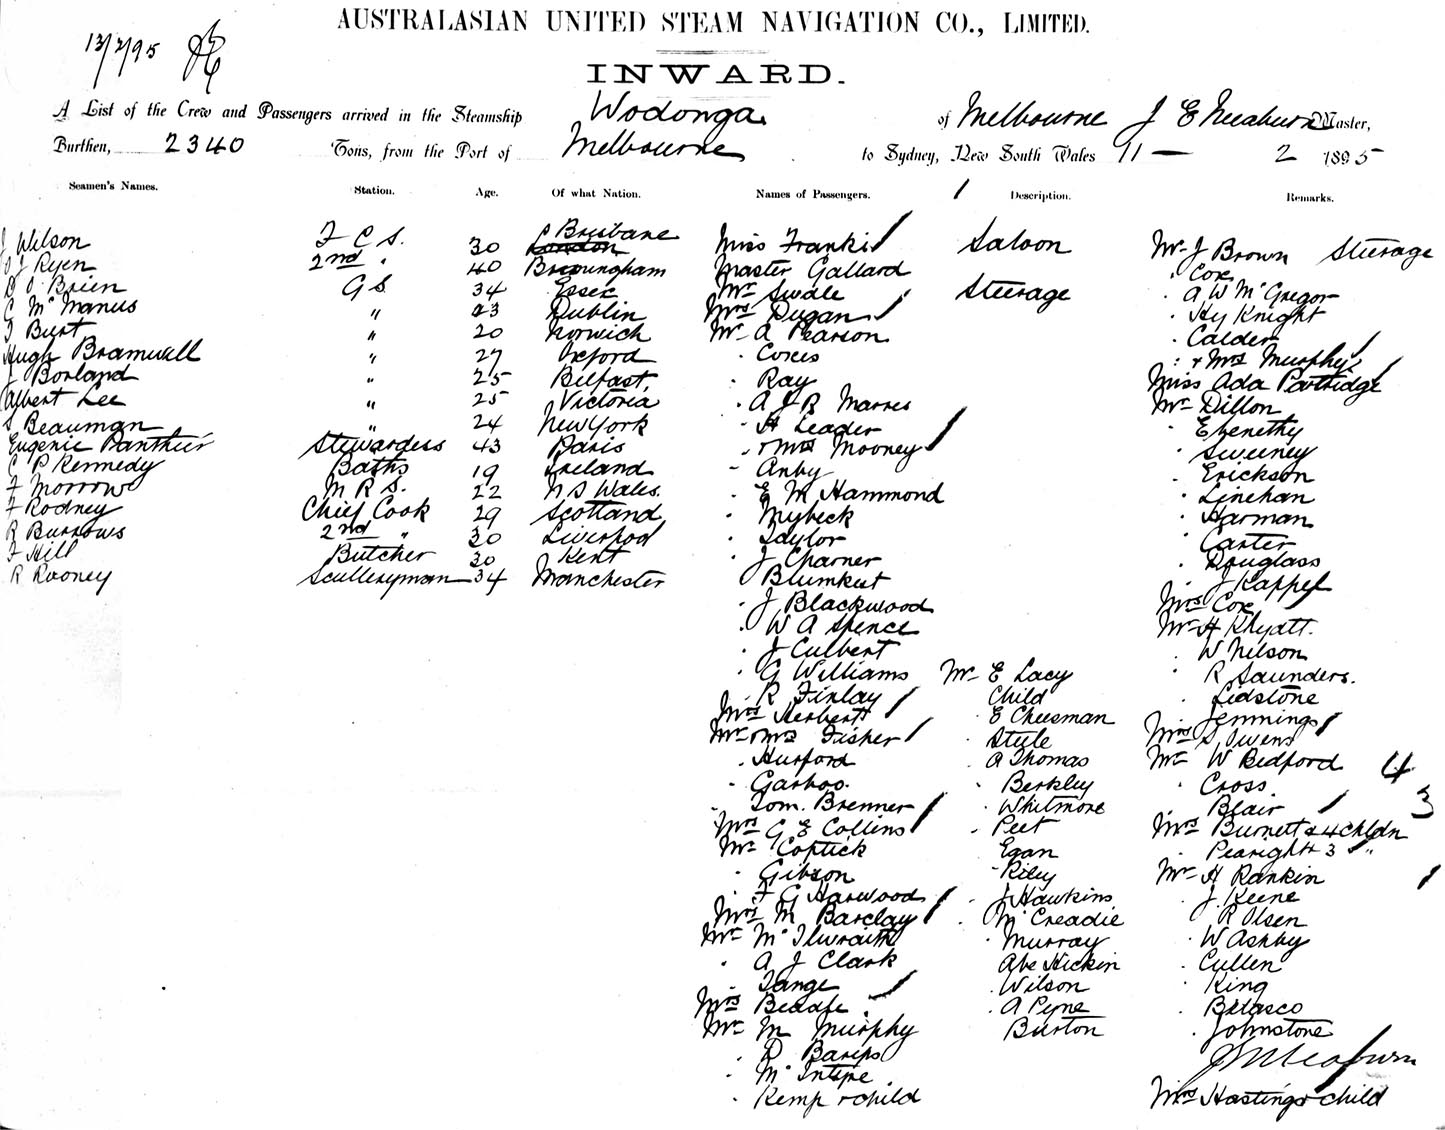 AUSTRALASIAN UNITED STEAM NAVIGATION CO., LIMITED.
13/2/95
INWARD.
A List of the Crew and Passengers arrived in the Steamship Wodonga of Melbourne J E Meaburn Master,
Burthen, 2340 Tons, from the Port of Melbourne to Sydney, New South Wales 11 — 2 1895
Seamen's Names. Station. Age. Of what Nation. Names of Passengers. Description. Remarks.
J Wilson F C S. 30 Brisbane
J Ryen 2nd " 40 Birmingham
D O'Brien G S. 34 Essex
C McManus " 23 Dublin
F Burt " 20 Norwich
Hugh Bramwell " 27 Oxford
J Borland " 25 Belfast
Albert Lee " 25 Victoria
S Beauman " 24 New York
Eugenie Panthur Stewardess 43 Paris
C P Kennedy Baths 19 Ireland
F Morrow M R S. 22 N S Wales.
F Rodney Chief Cook 29 Scotland
R Burrows 2nd " 30 Liverpool
F Hill Butcher 30 Kent
R Rooney Sculleryman 34 Manchester
Miss Franki Saloon
Master Gallard
Mr Swale Steerage
Mrs Dugan
Mr A Pearson
" Coxes
" Ray
" A J R Marres
" H Leader
" & Mrs Mooney
" Anby
" E M Hammond
" Mybeck
" Taylor
" J Charner
Blumkut
" J Blackwood
" W A Spence
" J Culbert
" G Williams
" R Finlay
Mrs Herbert
Mr & Mrs Fisher
" Hurford
" Garboo.
" Tom. Brenner
Mrs G E Collins
Mr Coptick
" Gibson
" F G Harwood
Mrs M Barclay
Mr McIlwraith
" A J Clark
" Tange
Mrs Beddfe
Mr M Murphy
" D Barips
" McIntyre
" Kemp & child
Mr E Lacy
Child
" E Cheesman
" Steele
" A Thomas
" Berkley
" Whitmore
" Peet
Egan
" Riley
" J Hawkins
" McCreadie
" Murray
Abe Hickin
" Wilson
" A Pyne
Burton
Mr J Brown Steerage
" Cox
" A W McGregor
" Hy Knight
" Calder
" & Mrs Murphy
Miss Ada Partridge
Mr Dillon
" Ebenethy
" Sweeney
" Erickson
" Linehan
" Harman
" Carter
" Douglass
" J Kappel
Mrs Cox
Mr H Khyatt.
" W Nilson
" R Saunders.
" Lidstone
" Jennings
Mrs S Owens
Mr W Bedford 4
" Cross. 3
" Blair
Mrs Burnett & 4 chldn
" Pearight & 3 "
Mr H Rankin
" J. Keene
" R Olsen
" W Ashby
" Cullen
" King
" Belasco
" Johnstone
J E Meaburn
Mrs Hastings & child